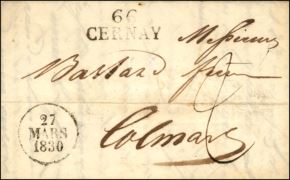 66
CERNAY
Messieurs
Colmar
27
MARS
1830